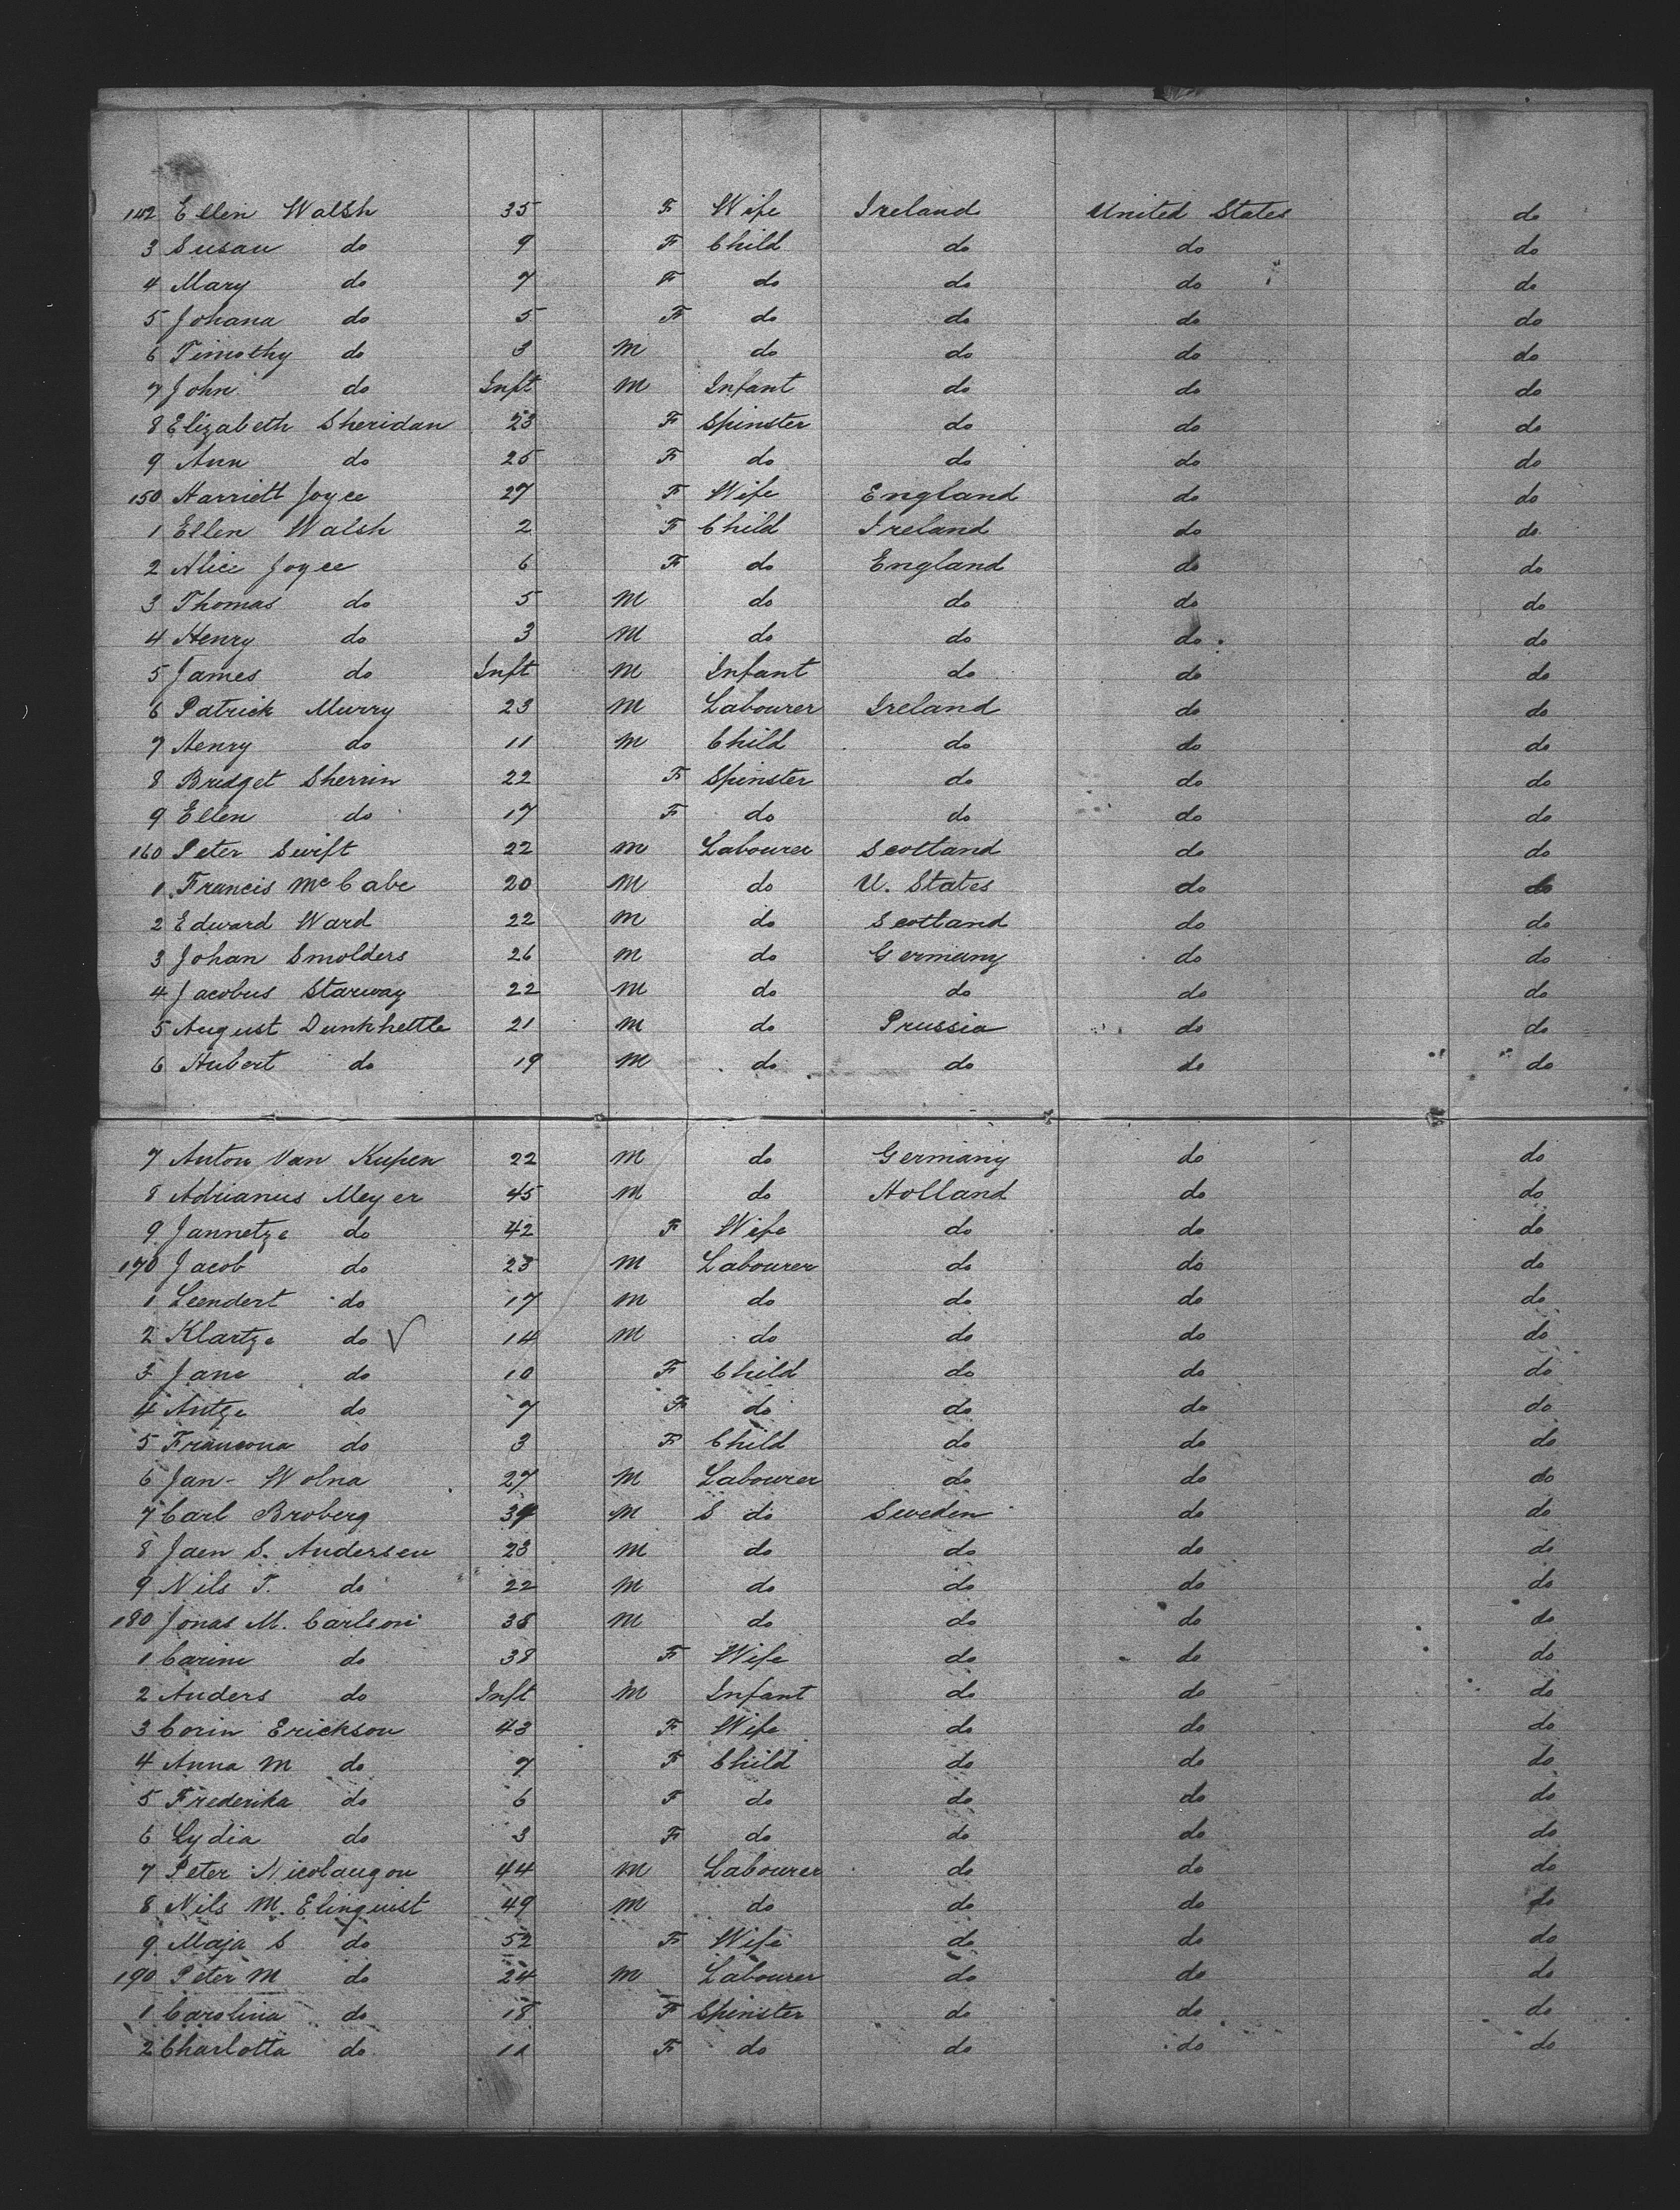 142 Ellen Walsh 35 F Wife Ireland United States do
3 Susan do 9 F Child do do do
4 Mary do 7 F do do do do
5 Johana do 5 F do do do do
6 Timothy do 3 M do do do do
7 John do Inft M Infant do do do
8 Elizabeth Sheridan 23 F Spinster do do do
9 Ann do 25 F do do do do
150 Harriett Joyce 27 F Wife England do do
1 Ellen Walsh 2 F Child Ireland do do
2 Alice Joyce 6 F do England do do
3 Thomas do 5 M do do do do
4 Henry do 3 M do do do do
5 James do Inft M Infant do do do
6 Patrick Murry 23 M Labourer Ireland do do
7 Henry do 11 M Child do do do
8 Bridget Sherrin 22 F Spinster do do do
9 Ellen do 17 F do do do do
160 Peter Swift 22 M Labourer Scotland do do
1 Francis McCabe 20 M do U. States do do
2 Edward Ward 22 M do Scotland do do
3 Johan Smolders 26 M do Germany do do
4 Jacobus Starway 22 M do do do do
5 August Dunkhettle 21 M do Prussia do do
6 Hubert do 19 M do do do do
7 Anton Van Kupen 22 M do Germany do do
8 Adrianus Meyer 45 M do Holland do do
9 Jannetze do 42 F Wife do do do
170 Jacob do 23 M Labourer do do do
1 Leendert do 17 M do do do do
2 Klartze do 14 M do do do do
3 Jane do 10 F Child do do do
4 Antze do 7 F do do do do
5 do 3 F Child do do do
6 Jan - Wolna 27 M Labourer do do do
7 Carl Broberg M S do Sweden do do
8 Jaen S. Andersen 23 M do do do do
9 Nils T. do 22 M do do do do
180 Jonas M. Carlson 38 M do do do do
1 Carine do 38 F Wife do do do
2 Anders do Inft M Infant do do do
3 Corin Erickson 43 F Wife do do do
4 Anna M do 7 F Child do do do
5 Frederika do 6 F do do do do
6 Lydia do 3 F do do do do
7 Peter Nicolaugon 44 M Labourer do do do
8 Nils M. Elinquist 49 M do do do do
9 Maja S do 52 F Wife do do do
190 Peter M do 24 M Labourer do do do
1 Carolina do 18 F Spinster do do do
2 Charlotta do 11 F do do do do